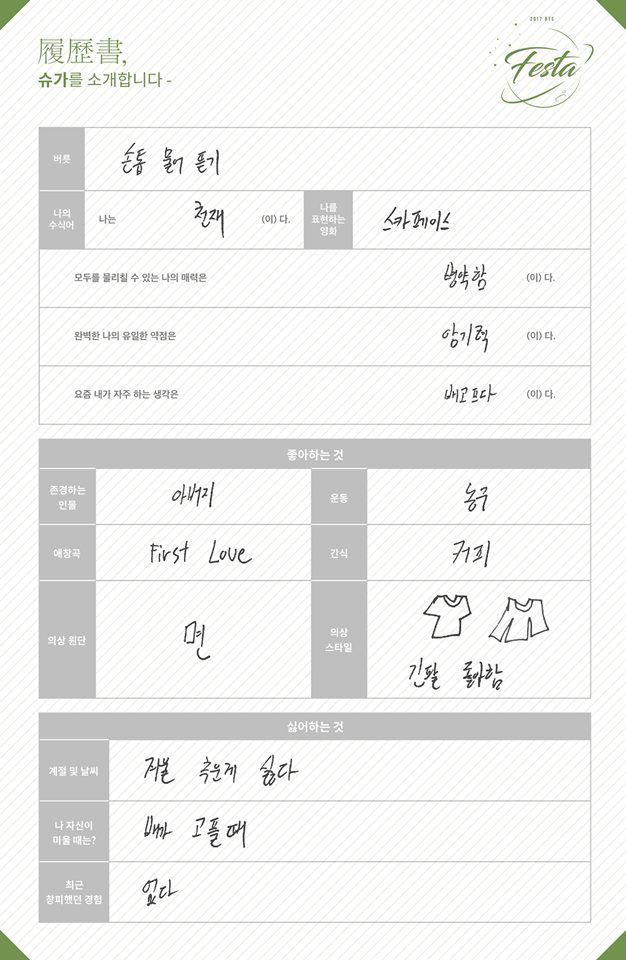 2017 BTS
Festa
履歷書,
슈가를 소개합니다 -
버릇
손톱 물어 뜯기
나의
수식어
나는 천재 (이) 다.
나를
표현하는
영화
스카페이스
모두를 물리칠 수 있는 나의 매력은 병약함 (이) 다.
완벽한 나의 유일한 약점은 암기력 (이) 다.
요즘 내가 자주 하는 생각은 배고프다 (이) 다.
좋아하는 것
존경하는
인물
아버지
운동
농구
애창곡
First Love
간식
커피
의상 원단
면
의상
스타일
긴팔 좋아함
싫어하는 것
계절 및 날씨
겨울 추운게 싫다
나 자신이
미울 때는?
배가 고플 때
최근
창피했던 경험
없다